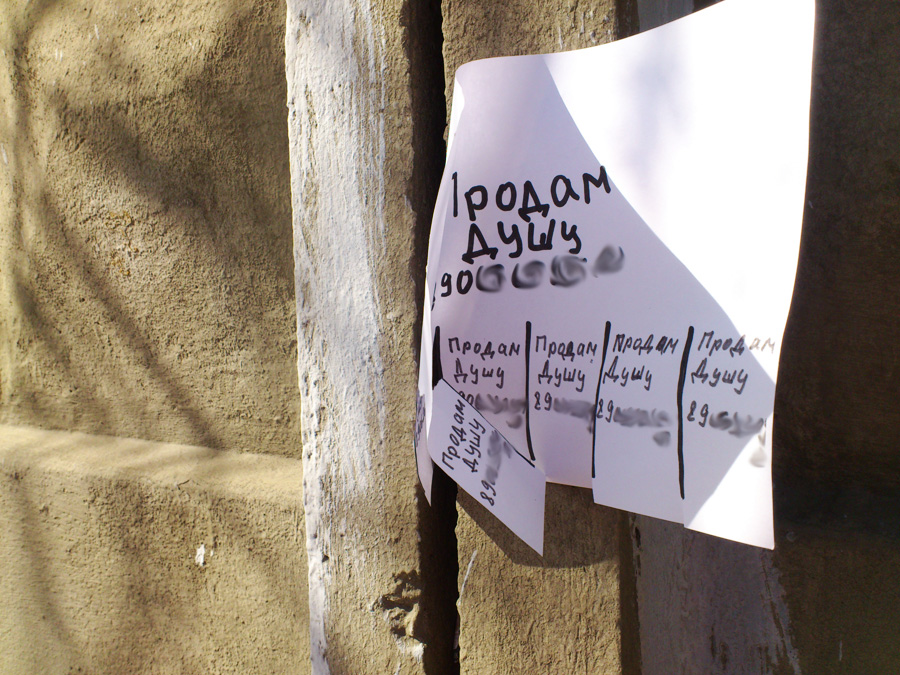 Продам
Душу
890
Продам
Душу
89
Продам
Душу
90
Продам
Душу
89
Продам
Душу
89
Продам
Душу
89